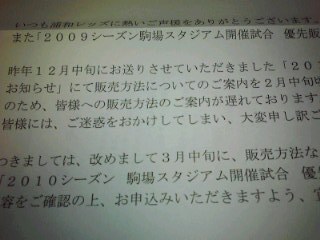 いつも浦和レッズに熱いご声援をありがとうございます。
また「2009シーズン駒場スタジアム開催試合 優先販
昨年12月中旬にお送りさせていただきました「20
お知らせ」にて販売方法についてのご案内を2月中旬
のため、皆様への販売方法のご案内が遅れております
皆様には、ご迷惑をおかけしてしまい、大変申し訳ご
つきましては、改めまして3月中旬に、販売方法な
「2010シーズン 駒場スタジアム開催試合 優
容をご確認の上、お申込みいただきますよう、宜